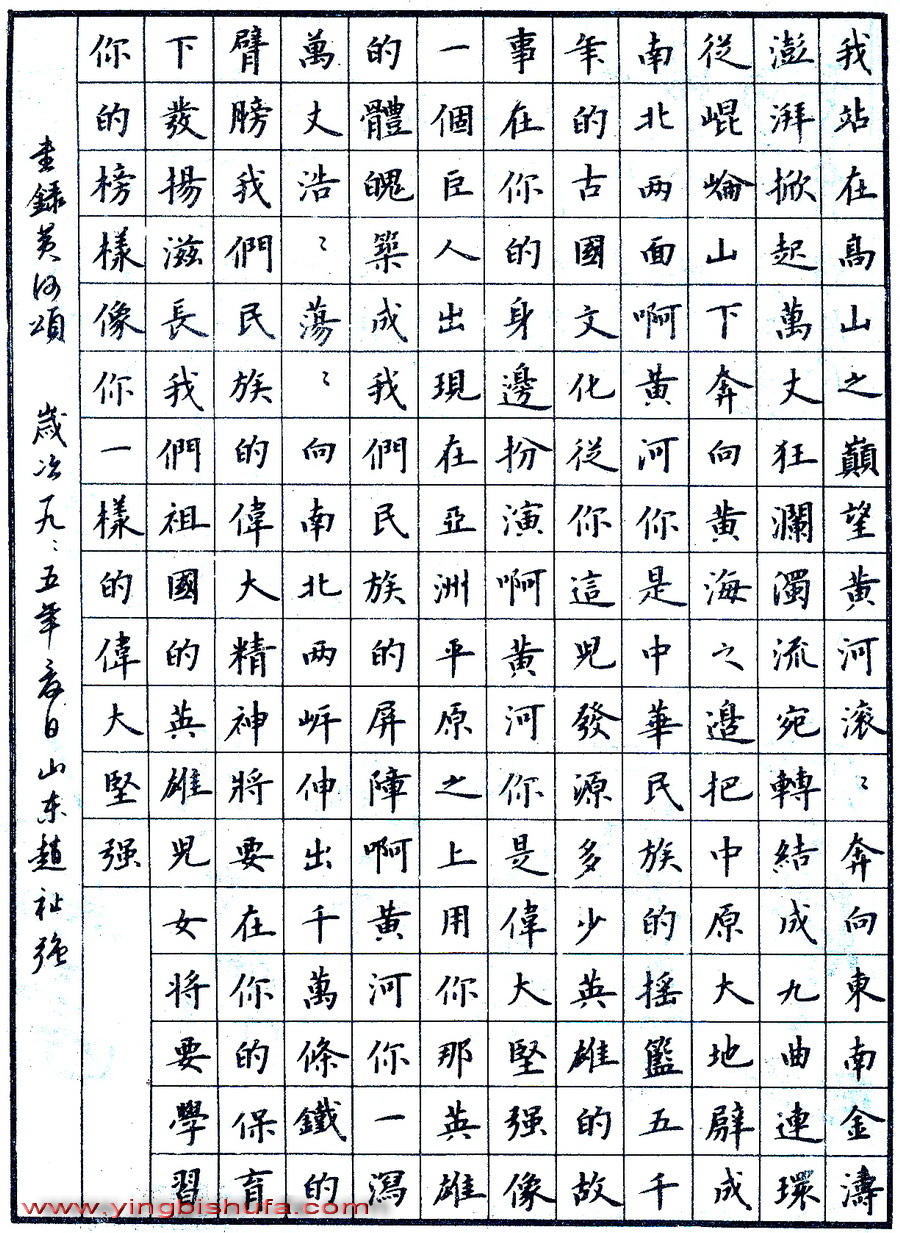 我站在高山之巔望黃河滾〻奔向東南金濤
澎湃掀起萬丈狂瀾濁流宛轉結成九曲連環
從崐崘山下奔向黃海之邊把中原大地劈成
南北兩面啊黃河你是中華民族的搖籃五千
年的古國文化從你這兒發源多少英雄的故
事在你的身邊扮演啊黃河你是偉大堅强像
一個巨人出現在亞洲平原之上用你那英雄
的體魄築成我們民族的屏障啊黃河你一瀉
萬丈浩〻蕩〻向南北兩岍伸出千萬條鐵的
臂膀我們民族的偉大精神將要在你的保育
下發揚滋長我們祖國的英雄兒女將要學習
你的榜樣像你一樣的偉大堅强
書録黃河頌 歲次一九〻五年夏日山东趙社强
www.yingbishufa.com